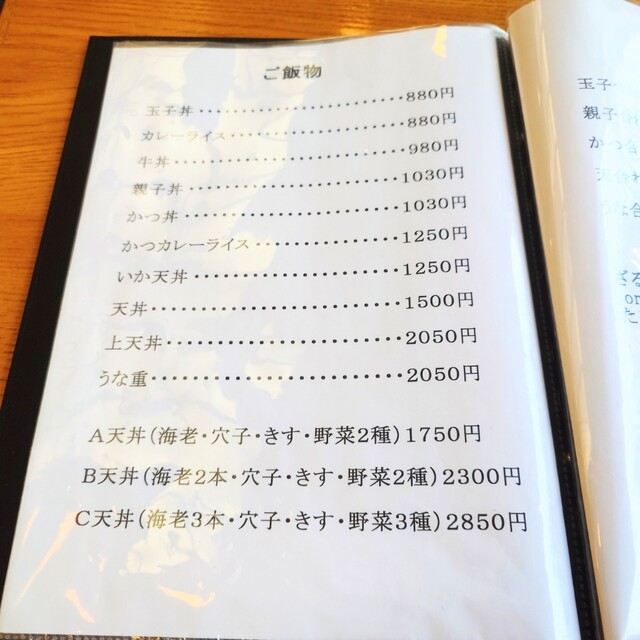 ご飯物
玉子丼・・・・・・・・・・・・・・・・・・・・・・・・880円
カレーライス・・・・・・・・・・・・・・・・・・・・880円
牛丼・・・・・・・・・・・・・・・・・・・・・・・・・・980円
親子丼・・・・・・・・・・・・・・・・・・・・・・・・1030円
かつ丼・・・・・・・・・・・・・・・・・・・・・・・・1030円
かつカレーライス・・・・・・・・・・・・・・・1250円
いか天丼・・・・・・・・・・・・・・・・・・・・・・1250円
天丼・・・・・・・・・・・・・・・・・・・・・・・・・・1500円
上天丼・・・・・・・・・・・・・・・・・・・・・・・・2050円
うな重・・・・・・・・・・・・・・・・・・・・・・・・2050円
A天丼(海老・穴子・きす・野菜2種)1750円
B天丼(海老2本・穴子・きす・野菜2種)2300円
C天丼(海老3本・穴子・きす・野菜3種)2850円
玉子
親子
かつ